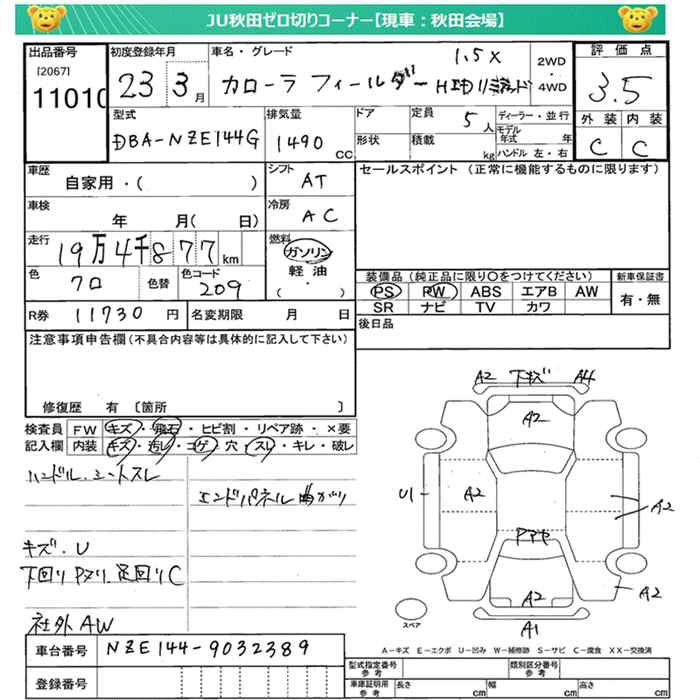 JU秋田ゼロ切りコーナー【現車：秋田会場】
出品番号 初度登録年月 車名・グレード 評価点
[2067] 11010
23 3月 カローラ フィールダー 1.5X
2WD・4WD
3.5
外装 内装
C C
型式 排気量 ドア 定員 ディーラー・並行
DBA-NZE144G 1490 CC 形状 積載 kg 5人 モデル年式 年 ハンドル 左・右
車歴 シフト セールスポイント（正常に機能するものに限ります）
自家用・（ ） AT
車検 冷房
年 月（ 日） AC
走行 燃料
19万4千877km ガソリン
軽油
・（ ）
色 色替 色コード
クロ 209
装備品（純正品に限り○をつけてください） 新車保証書
PS PW ABS エアB AW 有・無
SR ナビ TV カワ
R券 11730円 名変期限 月 日
後日品
注意事項申告欄（不具合内容等は具体的に記入して下さい）
修復歴 有〔箇所 〕
検査員記入欄 FW キズ・飛石・ヒビ割・リペア跡・×要
内装 キズ・汚レ・コゲ・穴・スレ・キレ・破レ
ハンドル・シートスレ
エンドパネル曲がり
キズ・U
下回りPヌリ 足回りC
社外AW
A2 下キズ A4
A2
U1 A2 A2
A2
A2
A1
スペア
A－キズ E－エクボ U－凹み W－補修跡 S－サビ C－腐食 XX－交換済
車台番号 NZE144-9032389
登録番号
型式指定番号 参考 類別区分番号 参考
車庫証明用 参考 長さ cm 幅 cm 高さ cm